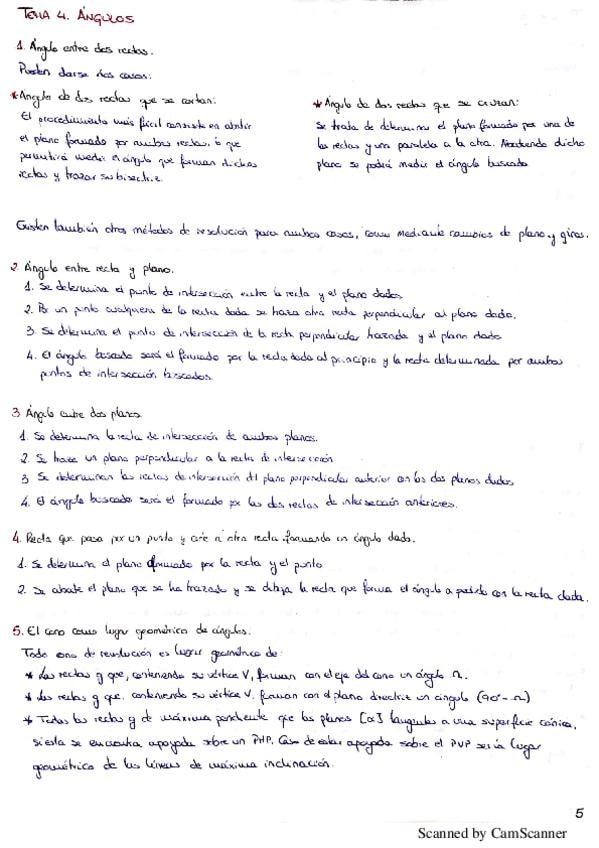 TEMA 4. ÁNGULOS
1. Ángulo entre dos rectas.
Pueden darse dos casos:
* Ángulo de dos rectas que se cortan:
El procedimiento más fácil consiste en abatir
el plano formado por ambas rectas, lo que
permitirá medir el ángulo que forman dichas
rectas y trazar su bisectriz.
* Ángulo de dos rectas que se cruzan:
Se trata de determinar el plano formado por una de
las rectas y una paralela a la otra. Abatiendo dicho
plano se podrá medir el ángulo buscado
Existen también otros métodos de resolución para ambos casos, como mediante cambios de plano y giros.
2. Ángulo entre recta y plano.
1. Se determina el punto de intersección entre la recta y el plano dados
2. Por un punto cualquiera de la recta dada se traza otra recta perpendicular al plano dado.
3. Se determina el punto de intersección de la recta perpendicular trazada y el plano dado
4. El ángulo buscado será el formado por la recta dada al principio y la recta determinada por ambos
puntos de intersección buscados.
3. Ángulo entre dos planos.
1. Se determina la recta de intersección de ambos planos.
2. Se traza un plano perpendicular a la recta de intersección
3. Se determinan las rectas de intersección del plano perpendicular anterior con los dos planos dados
4. El ángulo buscado será el formado por las dos rectas de intersección anteriores.
4. Recta que pasa por un punto y corte a otra recta formando un ángulo dado.
1. Se determina el plano formado por la recta y el punto
2. Se abate el plano que se ha trazado y se dibuja la recta que forma el ángulo a pedido con la recta dada.
5. El cono como lugar geométrico de ángulos.
Todo cono de revolución es lugar geométrico de:
* Las rectas g que, conteniendo su vértice V, forman con el eje del cono un ángulo
* Las rectas g que, conteniendo su vértice V, forman con el plano directriz un ángulo
* Todas las rectas g de máxima pendiente que los planes [α] tangentes a una superficie cónica,
si esta se encuentra apoyada sobre un PHP. Caso de estar apoyada sobre el PVP sería lugar
geométrico de las líneas de máxima inclinación.
5
Scanned by CamScanner